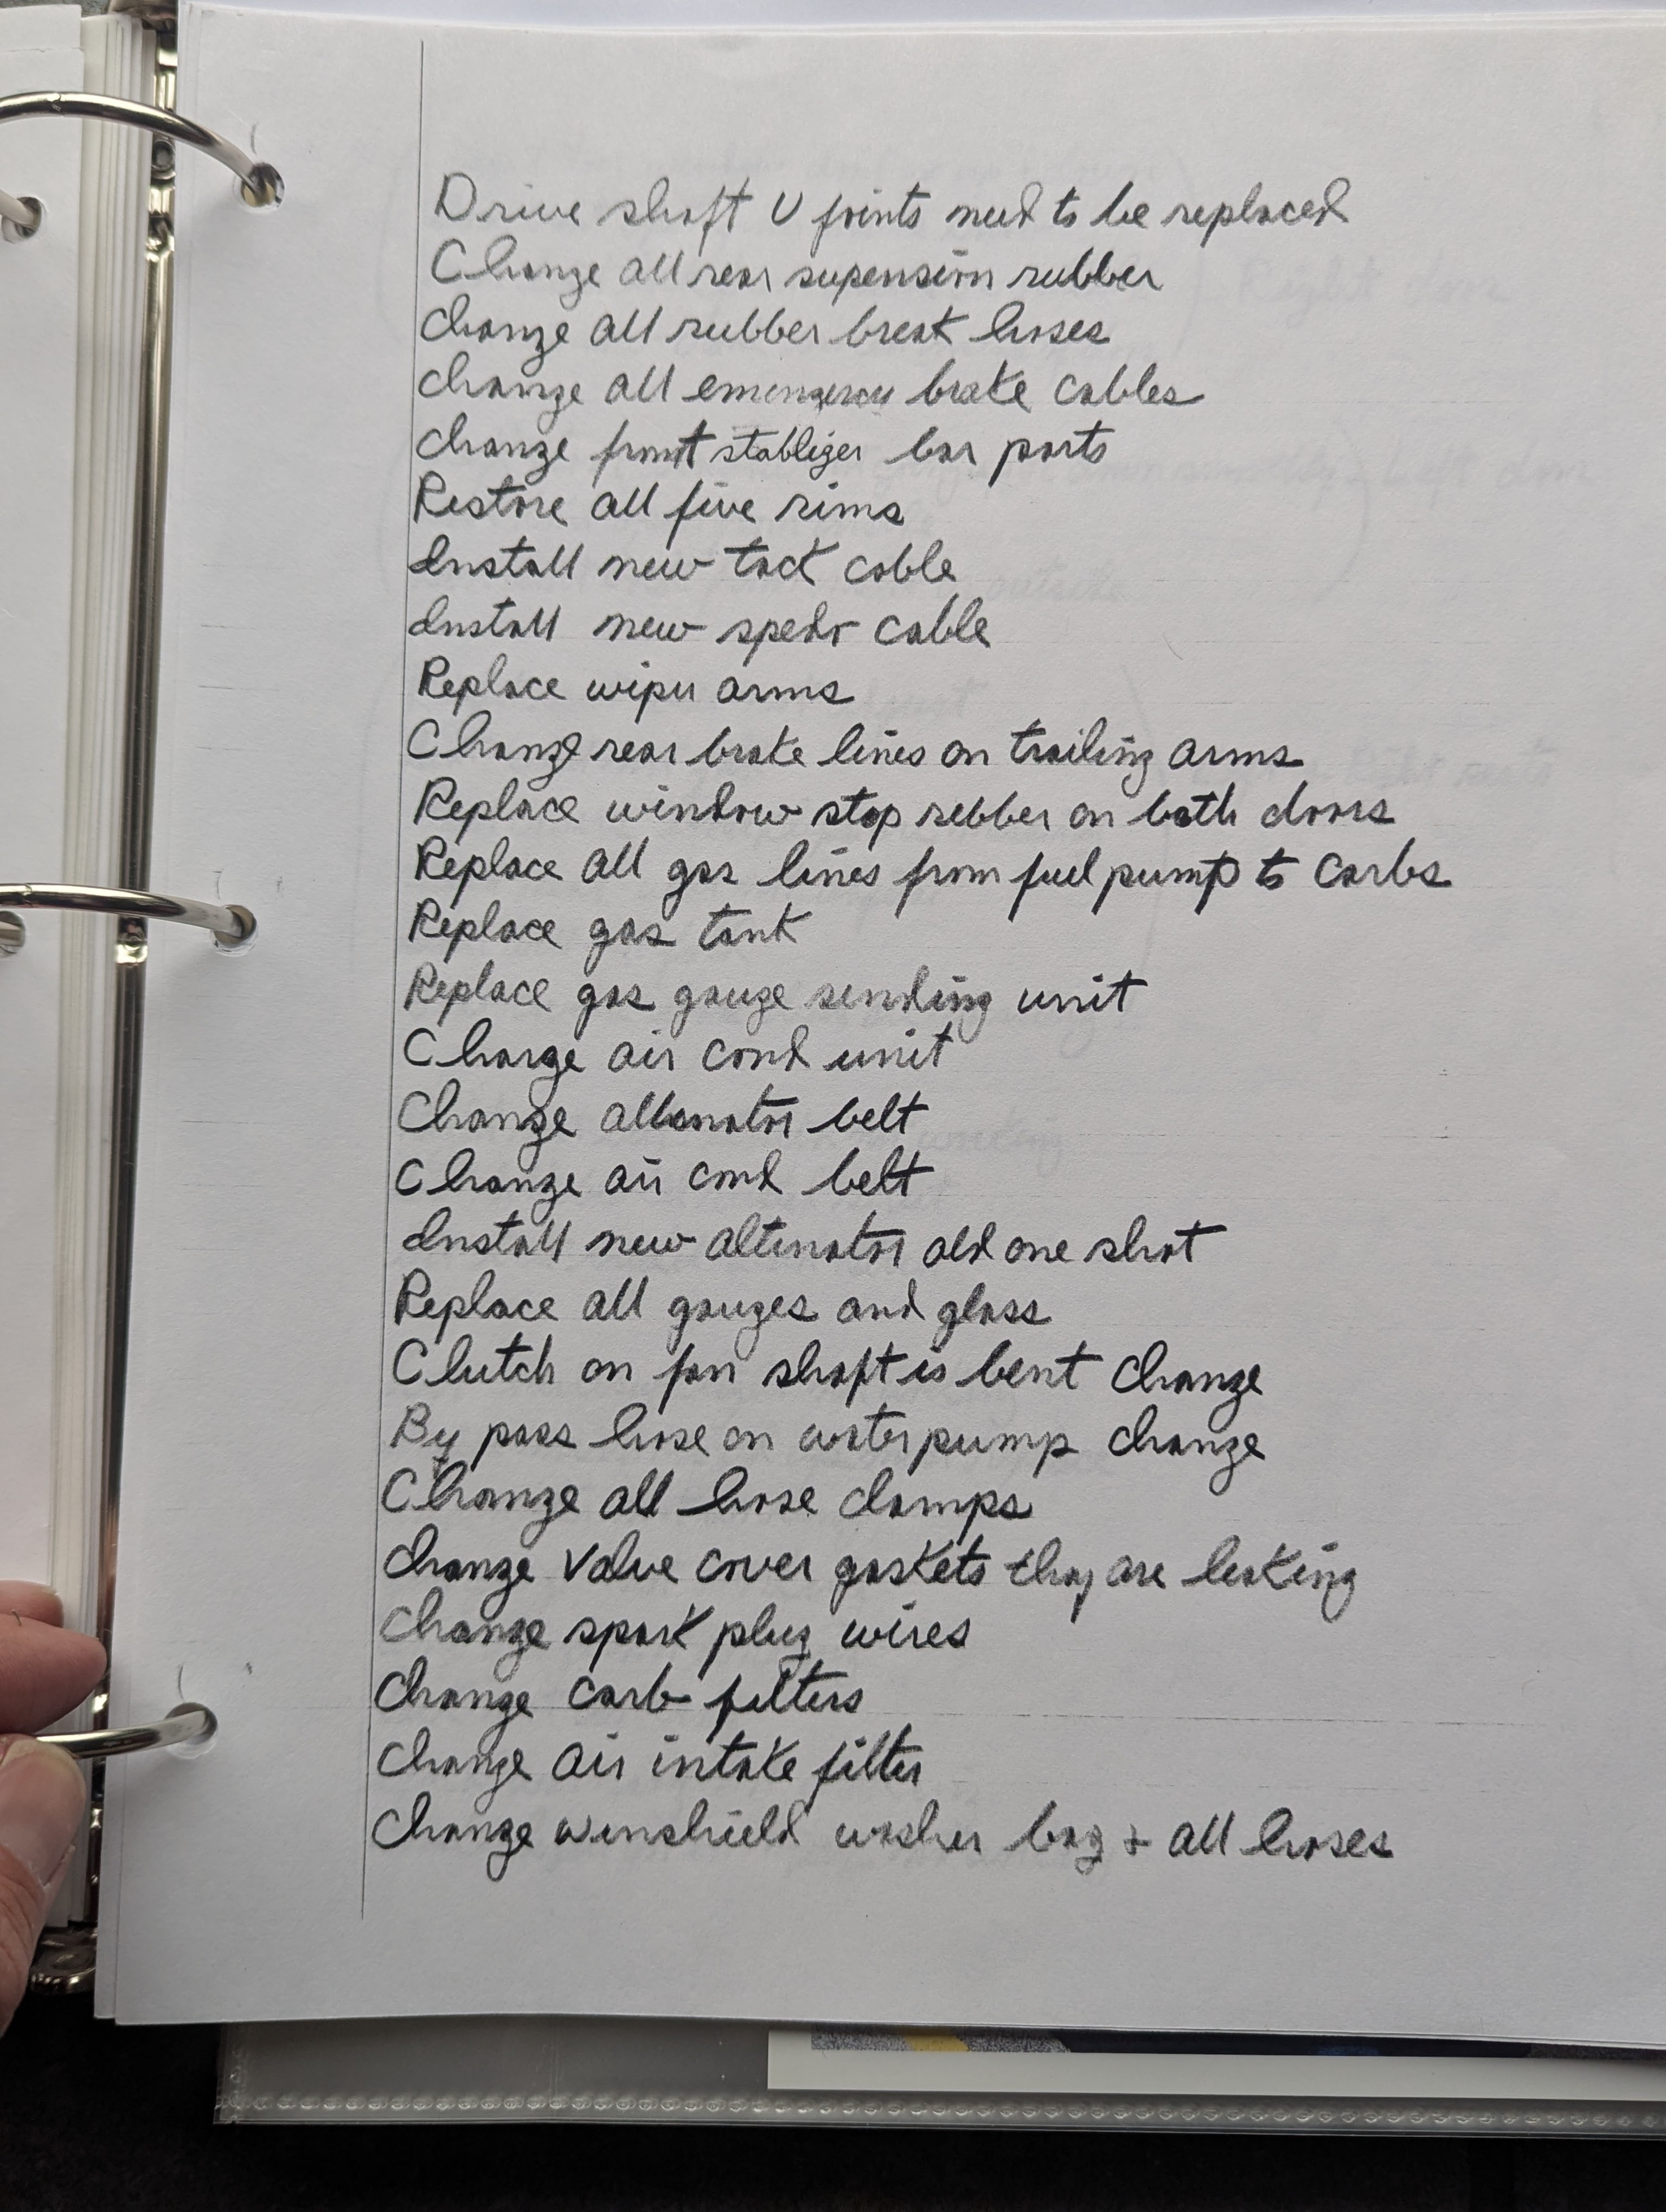 Drive shaft U joints need to be replaced
Change all rear supension rubber
Change all rubber break hoses
Change all emergency brake cables
Change front stablizer bar parts
Restore all five rims
Install new tack cable
Install new spedo cable
Replace wiper arms
Change rear brake lines on trailing arms
Replace window stop rubber on both doors
Replace all gas lines from fuel pump to carbs
Replace gas tank
Replace gas gauge sending unit
Charge air cond unit
Change altenator belt
Change air cond belt
Install new altinator old one shot
Replace all gauges and glass
Clutch on fan shaft is bent change
By pass hose on water pump change
Change all hose clamps
Change valve cover gaskets they are leaking
Change spark plug wires
Change carb filters
Change air intake filter
Change winshield washer bag + all hoses